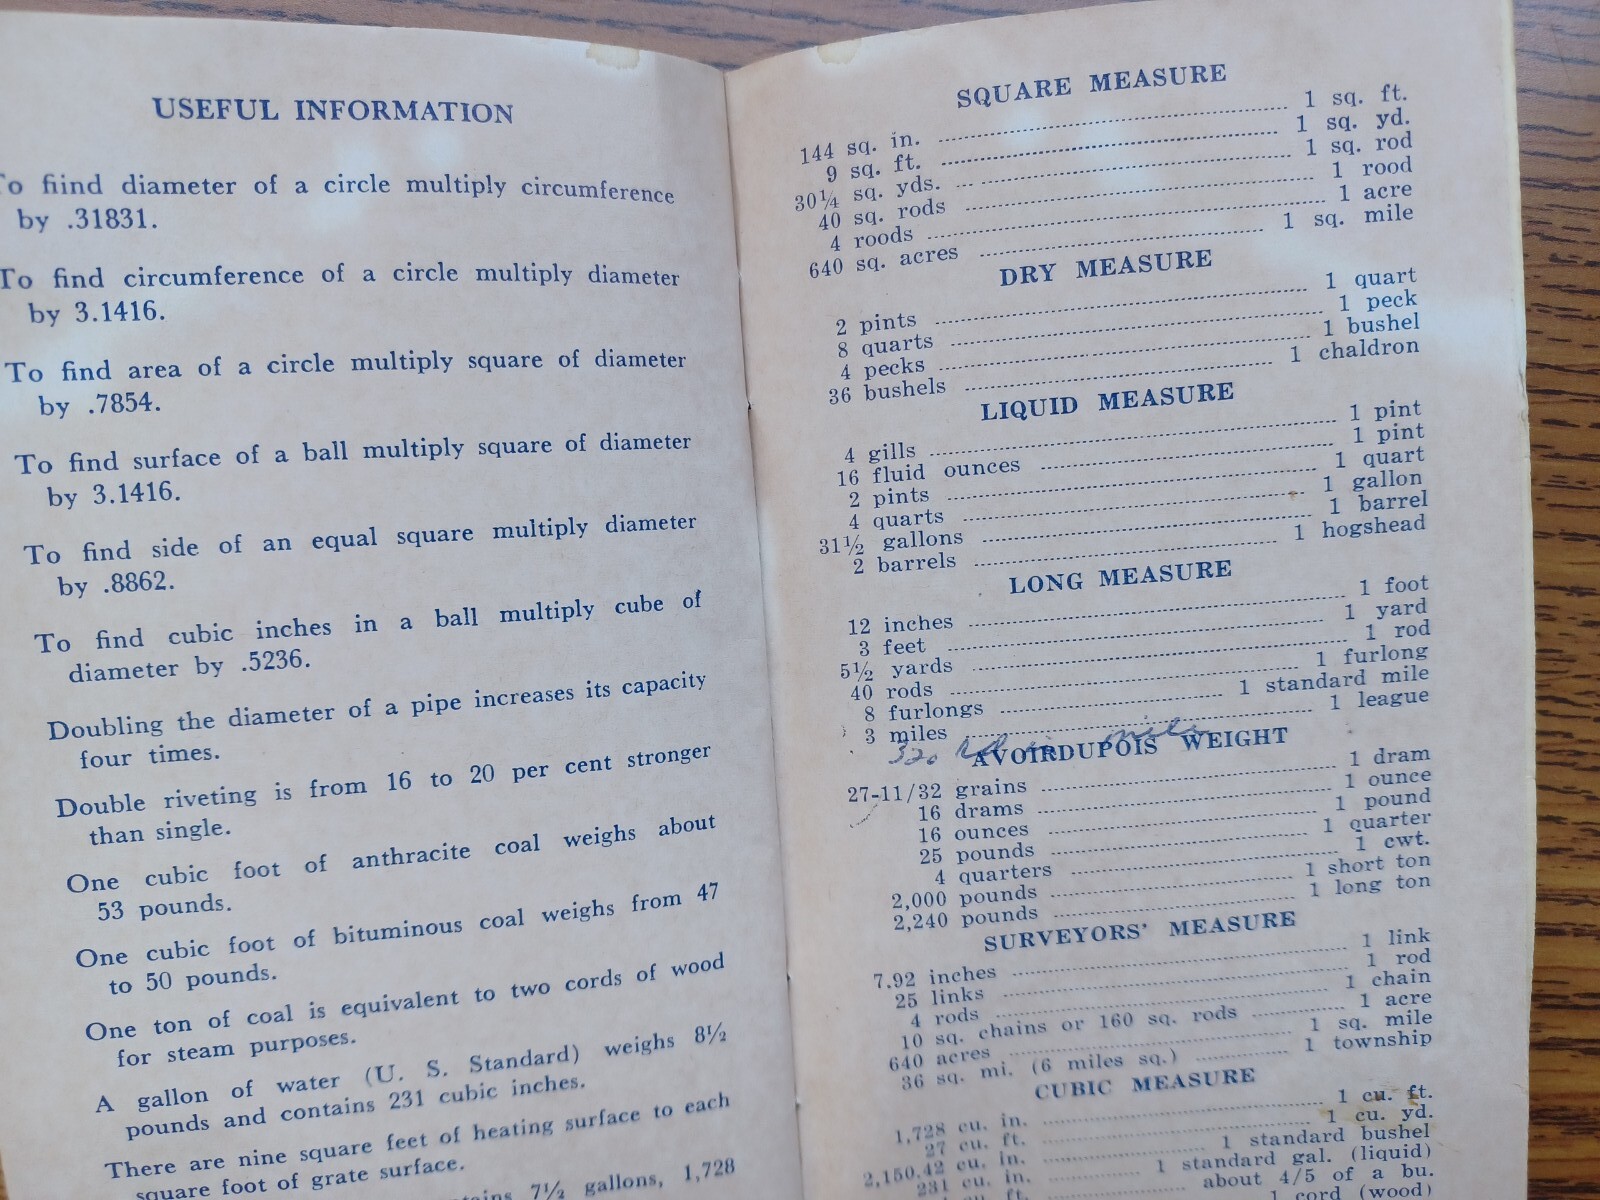 USEFUL INFORMATION
To fiind diameter of a circle multiply circumference
by .31831.
To find circumference of a circle multiply diameter
by 3.1416.
To find area of a circle multiply square of diameter
by .7854.
To find surface of a ball multiply square of diameter
by 3.1416.
To find side of an equal square multiply diameter
by .8862.
To find cubic inches in a ball multiply cube of
diameter by .5236.
Doubling the diameter of a pipe increases its capacity
four times.
Double riveting is from 16 to 20 per cent stronger
than single.
One cubic foot of anthracite coal weighs about
53 pounds.
One cubic foot of bituminous coal weighs from 47
to 50 pounds.
One ton of coal is equivalent to two cords of wood
for steam purposes.
A gallon of water (U. S. Standard) weighs 8½
pounds and contains 231 cubic inches.
There are nine square feet of heating surface to each
square foot of grate surface.
7½ gallons, 1,728
SQUARE MEASURE
144 sq. in. 1 sq. ft.
9 sq. ft. 1 sq. yd.
30¼ sq. yds. 1 sq. rod
40 sq. rods 1 rood
4 roods 1 acre
640 sq. acres 1 sq. mile
DRY MEASURE
2 pints 1 quart
8 quarts 1 peck
4 pecks 1 bushel
36 bushels 1 chaldron
LIQUID MEASURE
4 gills 1 pint
16 fluid ounces 1 pint
2 pints 1 quart
4 quarts 1 gallon
31½ gallons 1 barrel
2 barrels 1 hogshead
LONG MEASURE
12 inches 1 foot
3 feet 1 yard
5½ yards 1 rod
40 rods 1 furlong
8 furlongs 1 standard mile
3 miles 1 league
320 rd in mile
AVOIRDUPOIS WEIGHT
27-11/32 grains 1 dram
16 drams 1 ounce
16 ounces 1 pound
25 pounds 1 quarter
4 quarters 1 cwt.
2,000 pounds 1 short ton
2,240 pounds 1 long ton
SURVEYORS' MEASURE
7.92 inches 1 link
25 links 1 rod
4 rods 1 chain
10 sq. chains or 160 sq. rods 1 acre
640 acres 1 sq. mile
36 sq. mi. (6 miles sq.) 1 township
CUBIC MEASURE
1,728 cu. in. 1 cu. ft.
27 cu. ft. 1 cu. yd.
2,150.42 cu. in. 1 standard bushel
231 cu. in. 1 standard gal. (liquid)
cu. ft. about 4/5 of a bu.
1 cord (wood)